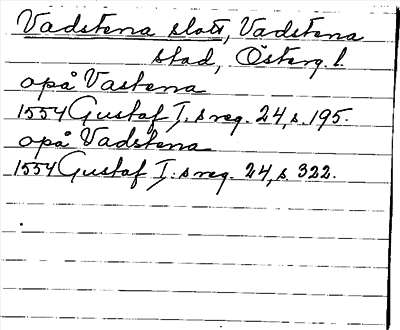 Vadstena slott, Vadstena
stad, Österg. l.
opå Vastena
1554 Gustaf I. s reg. 24, s. 195.
opå Vadstena
1554 Gustaf I. s reg. 24, s. 322.